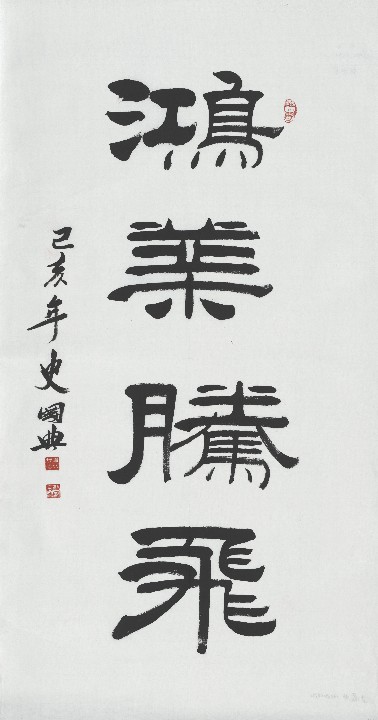 鴻業騰飛
己亥年史國典